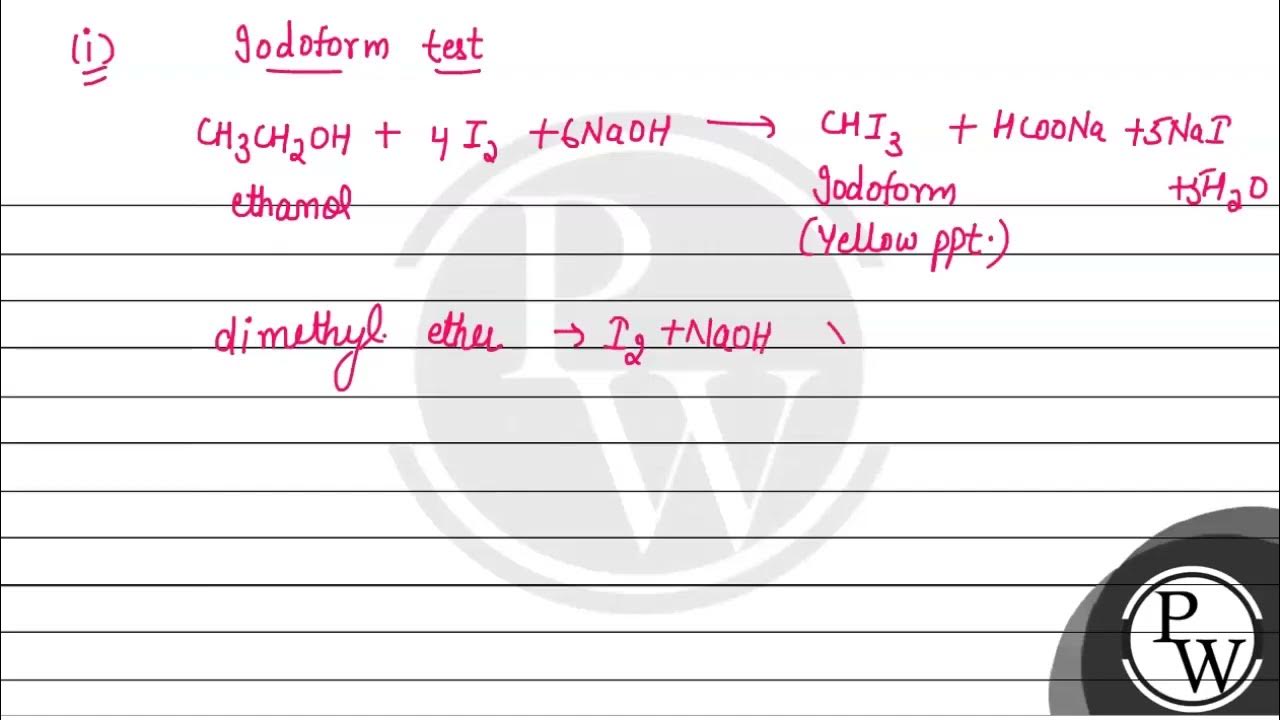 (i) Iodoform test
CH₃CH₂OH + 4 I₂ + 6NaOH → CHI₃ + HCOONa + 5NaI
ethanol Iodoform + 5H₂O
(Yellow ppt.)
dimethyl ether → I₂ + NaOH \
P
W
P
W